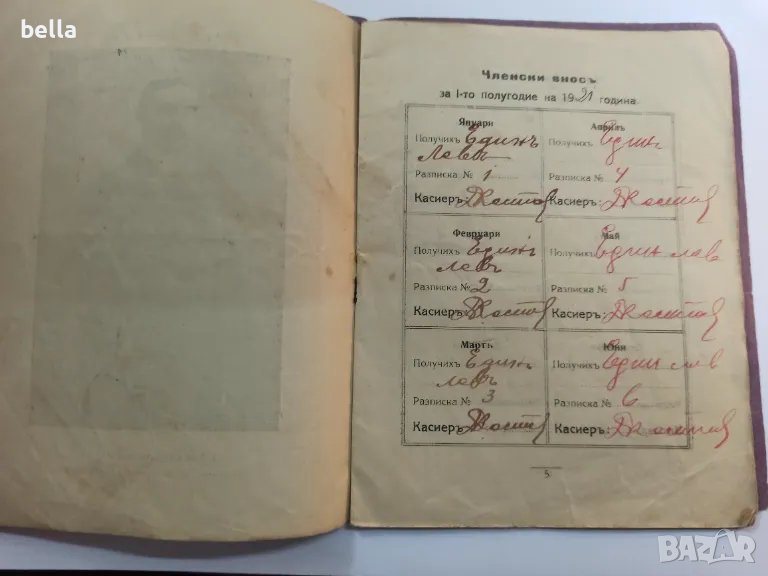 bella
Членски вносъ
за I-то полугодие на 1921 година
Януари
Получихъ Единъ
Левъ
Разписка № 1
Касиеръ:
Априлъ
Получихъ Един
Разписка № 4
Касиеръ:
Февруари
Получихъ Единъ
левъ
Разписка № 2
Касиеръ:
Май
Получихъ Един лев
Разписка № 5
Касиеръ:
Мартъ
Получихъ Единъ
левъ
Разписка № 3
Касиеръ:
Юни
Получихъ Един лев
Разписка № 6
Касиеръ:
5
BAZAR